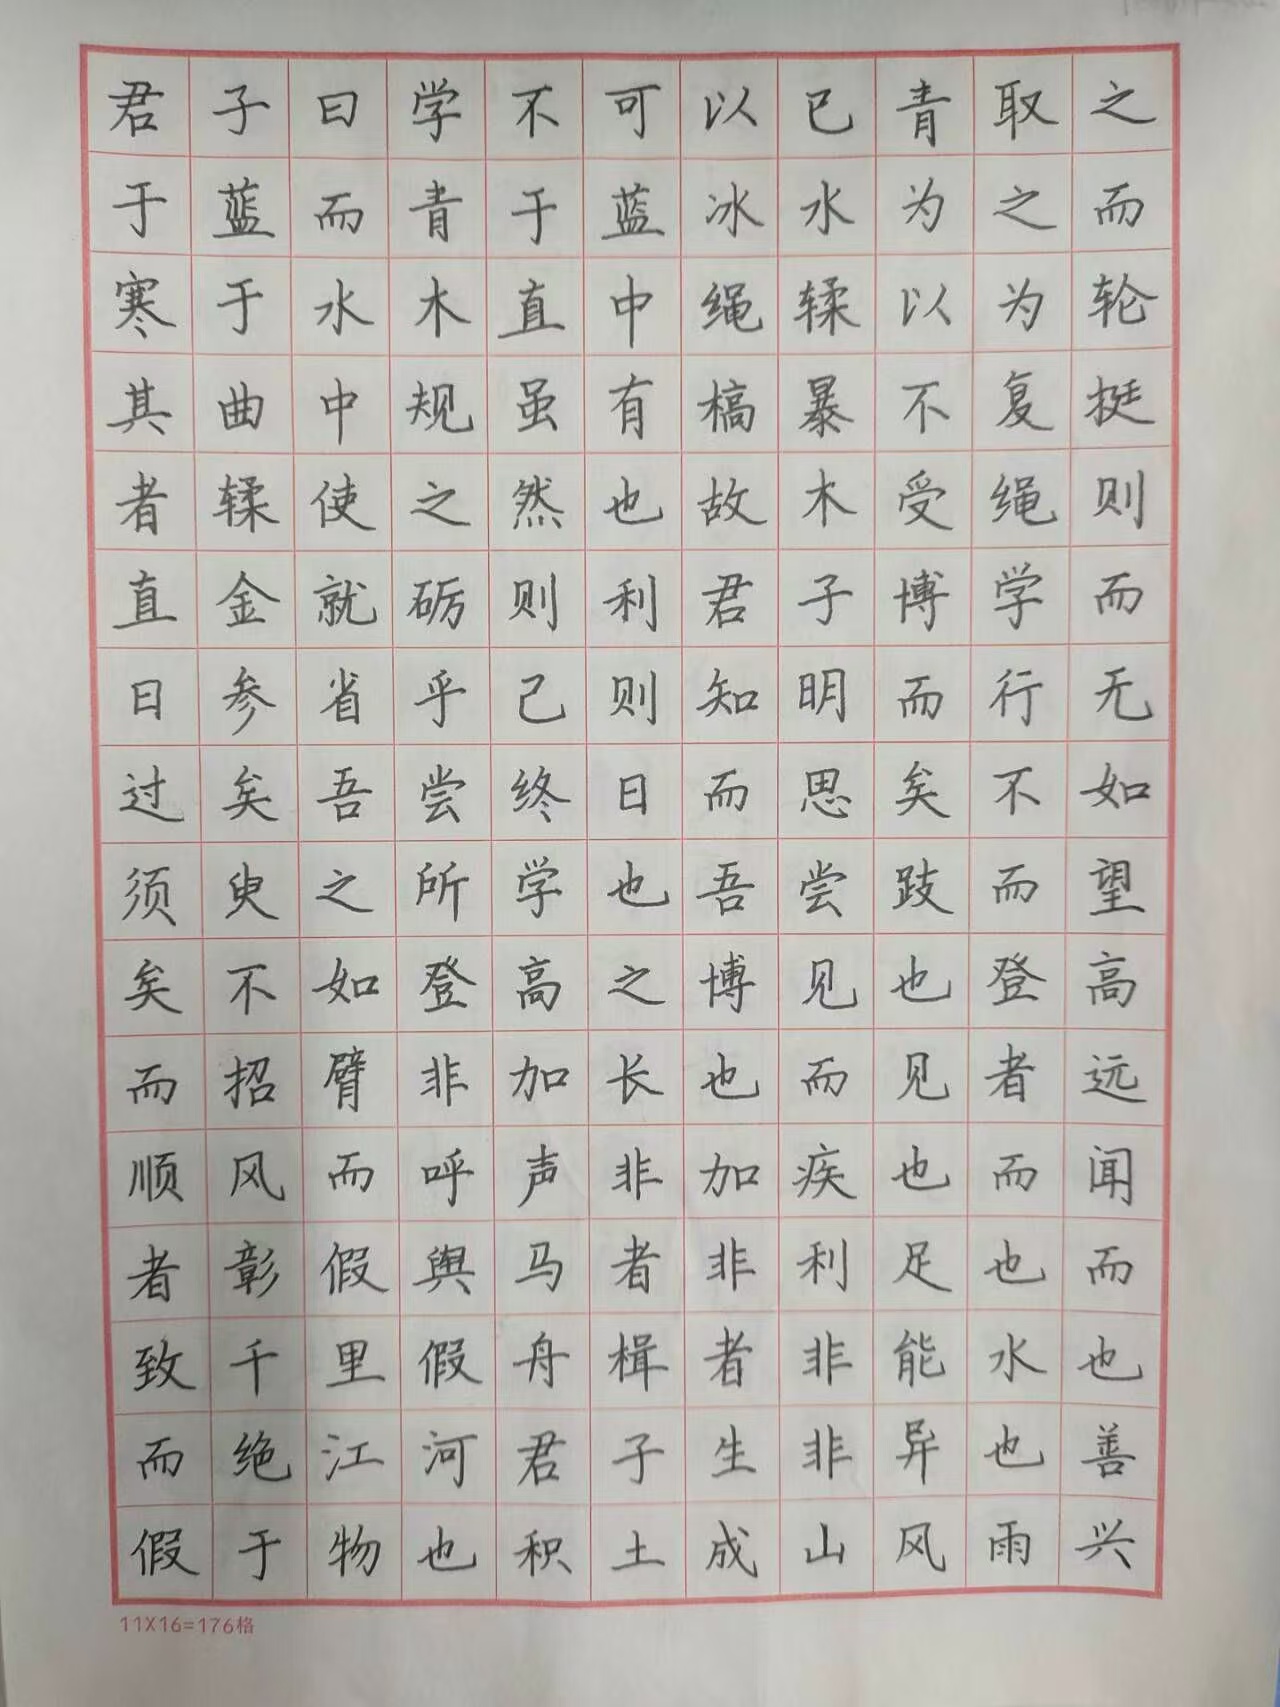 君子曰学不可以已青取之
于蓝而青于蓝冰水为之而
寒于水木直中绳𫐓以为轮
其曲中规虽有槁暴不复挺
者𫐓使之然也故木受绳则
直金就砺则利君子博学而
日参省乎己则知明而行无
过矣吾尝终日而思矣不如
须臾之所学也吾尝跂而望
矣不如登高之博见也登高
而招臂非加长也而见者远
顺风而呼声非加疾也而闻
者彰假舆马者非利足也而
致千里假舟楫者非能水也
而绝江河君子生非异也善
假于物也积土成山风雨兴
11X16=176格